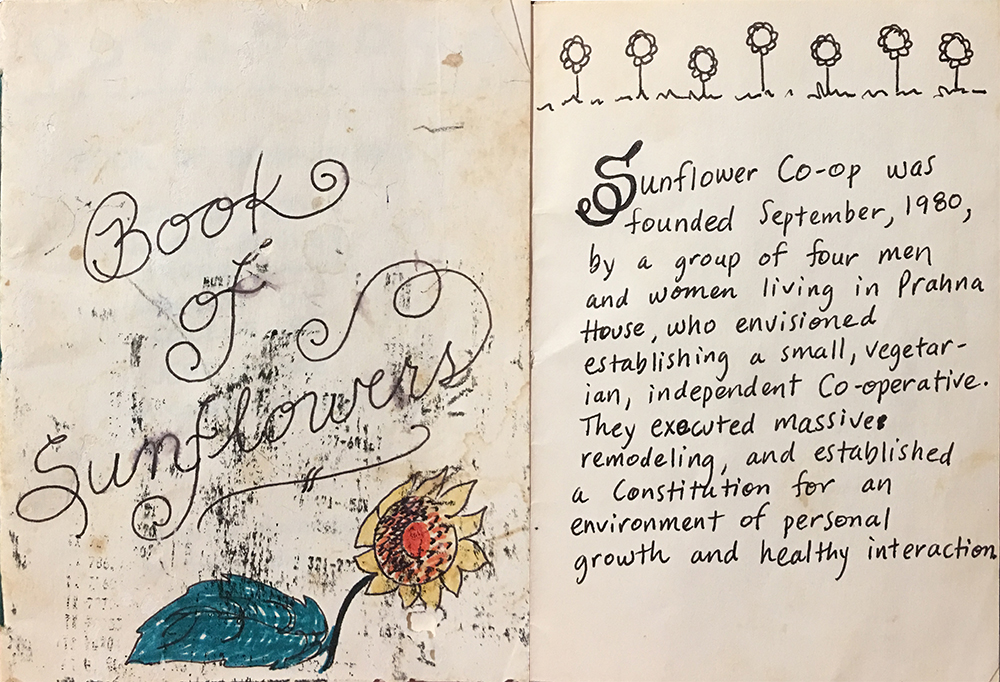 Book
of
Sunflowers
Sunflower Co-op was
founded September, 1980,
by a group of four men
and women living in Prahna
House, who envisioned
establishing a small, vegetar-
ian, independent Co-operative.
They executed massive
remodeling, and established
a Constitution for an
environment of personal
growth and healthy interaction